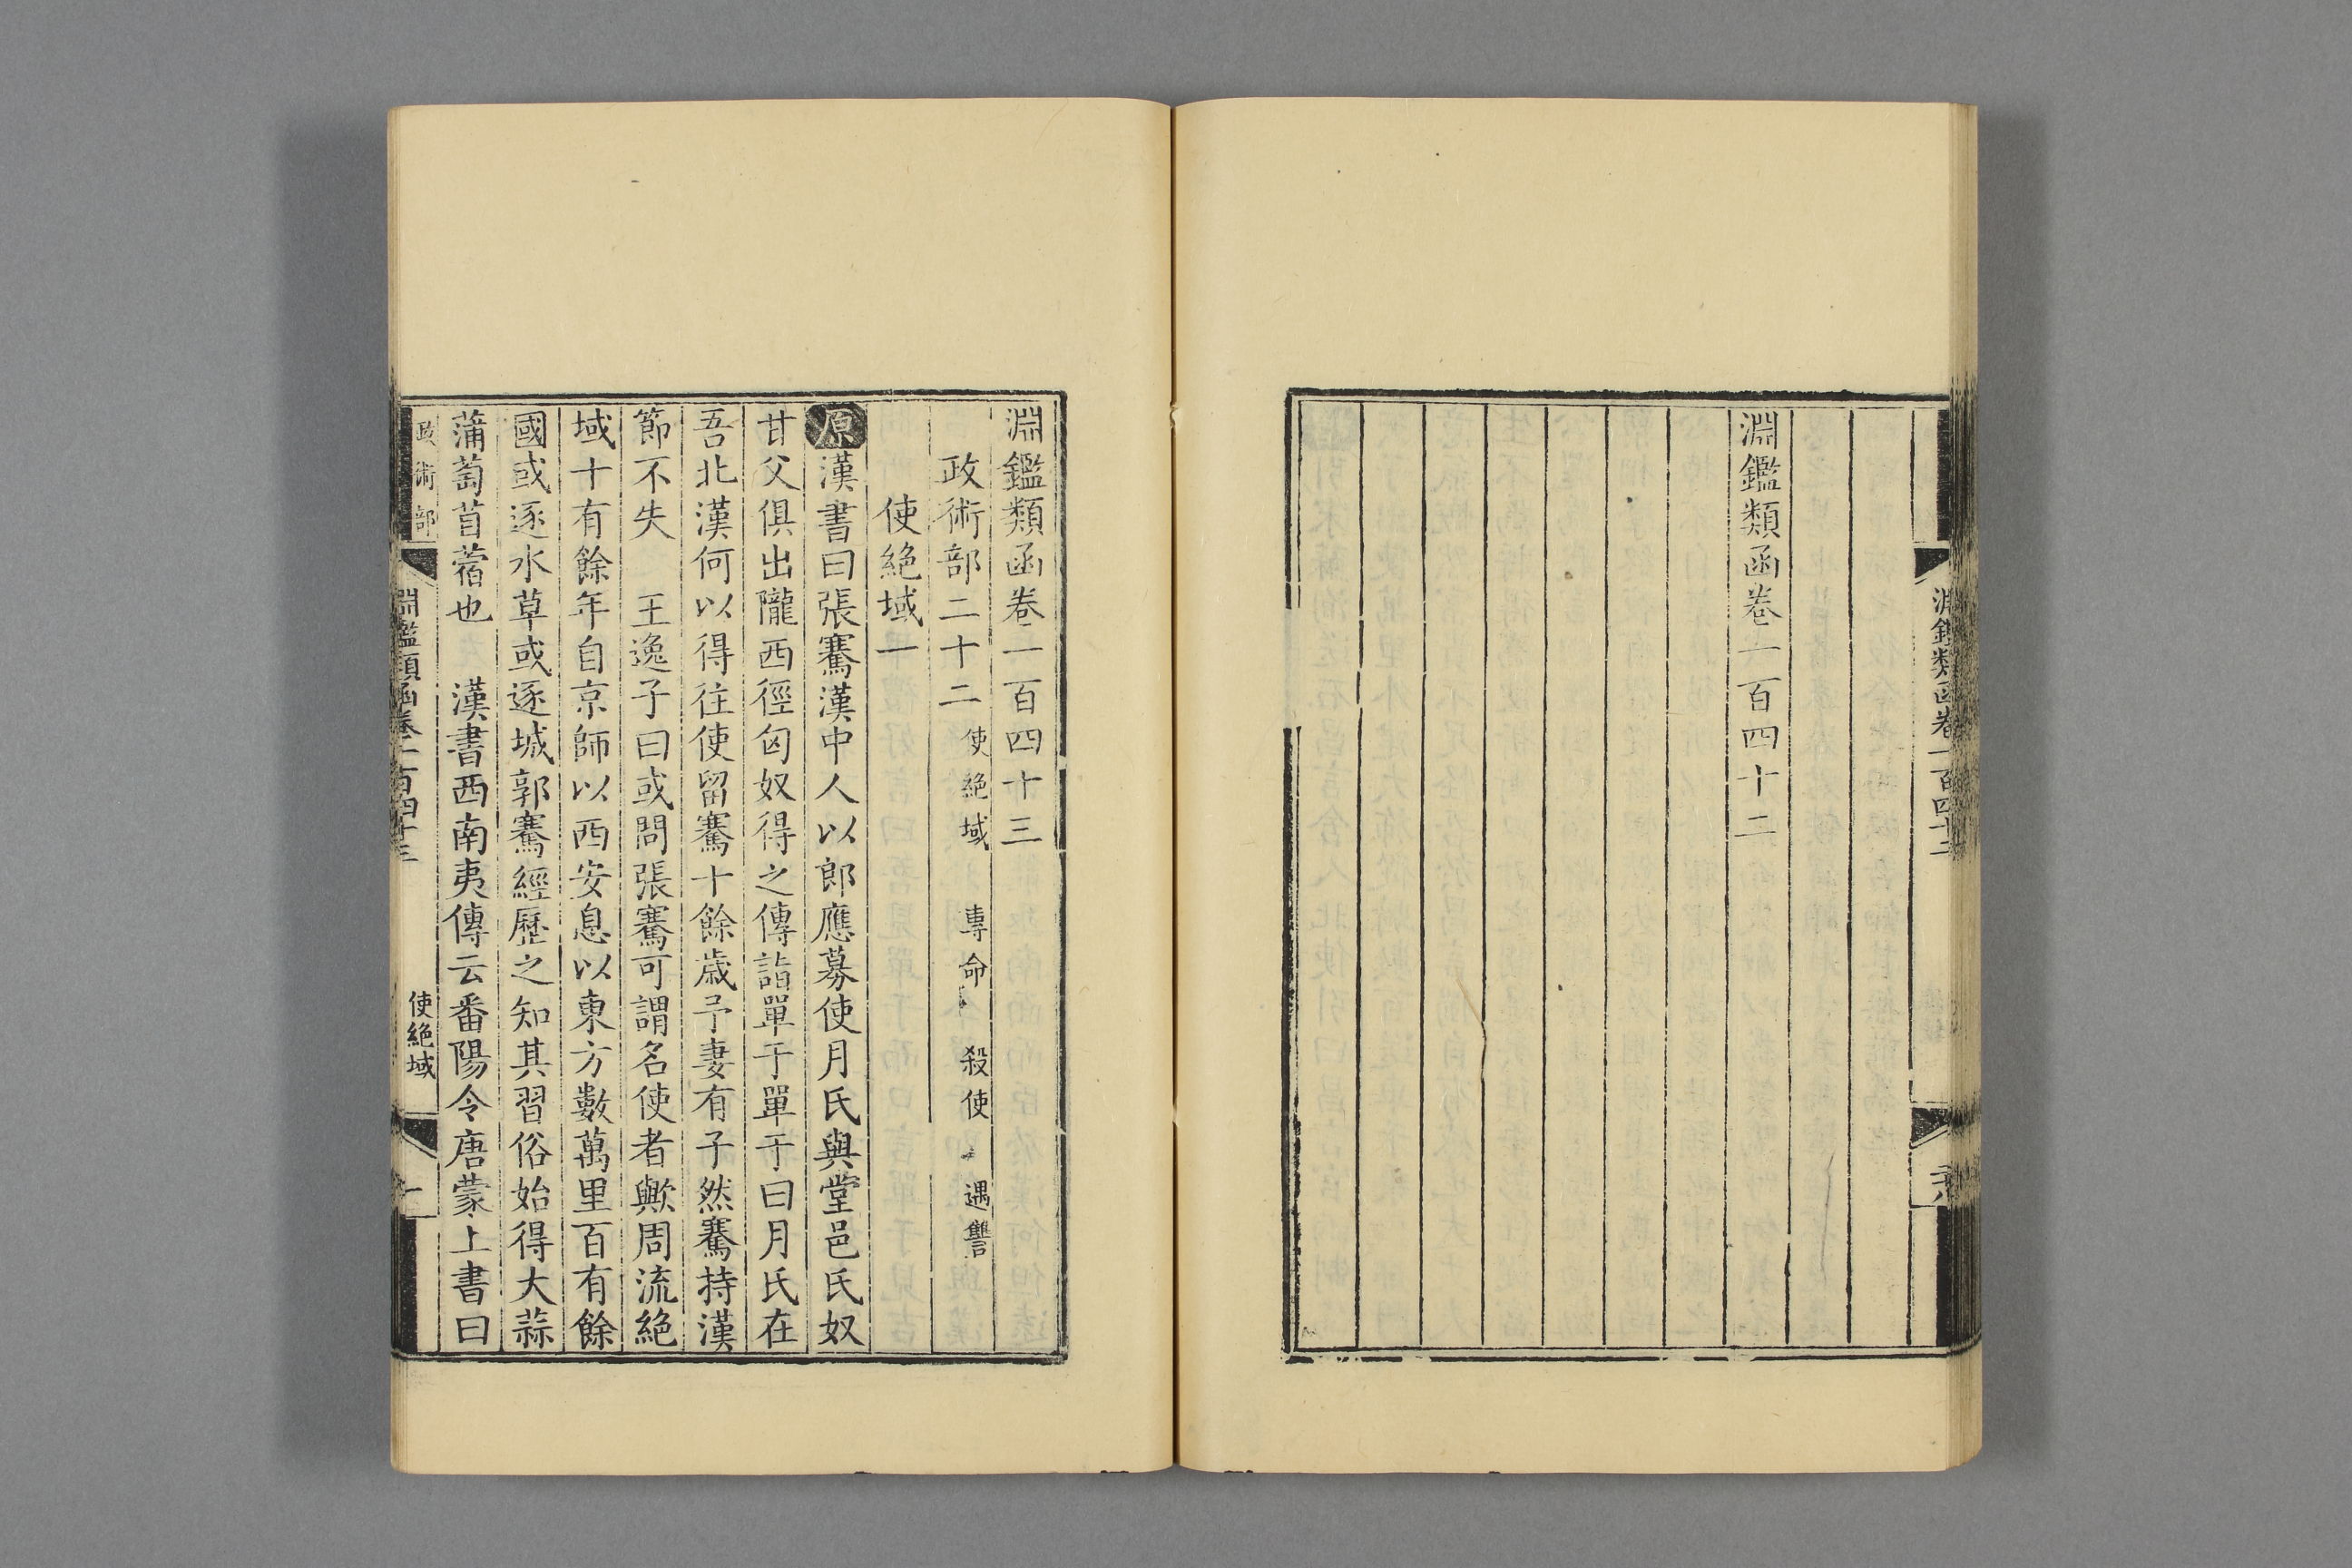 淵鑑類函卷一百四十二
淵鑑類函卷一百四十二
淵鑑類函卷一百四十三
政術部二十二 使絕域 專命 殺使 遇讐
使絕域一
原漢書曰張騫漢中人以郎應募使月氏與堂邑氏奴
甘父俱出隴西徑匈奴得之傳詣單于單于曰月氏在
吾北漢何以得往使留騫十餘歲予妻有子然騫持漢
節不失 王逸子曰或問張騫可謂名使者歟周流絕
域十有餘年自京師以西安息以東方數萬里百有餘
國或逐水草或逐城郭騫經歷之知其習俗始得大蒜
蒲萄苜蓿也 漢書西南夷傳云番陽令唐蒙上書曰
政術部 淵鑑類函卷一百四十三 使絕域 一